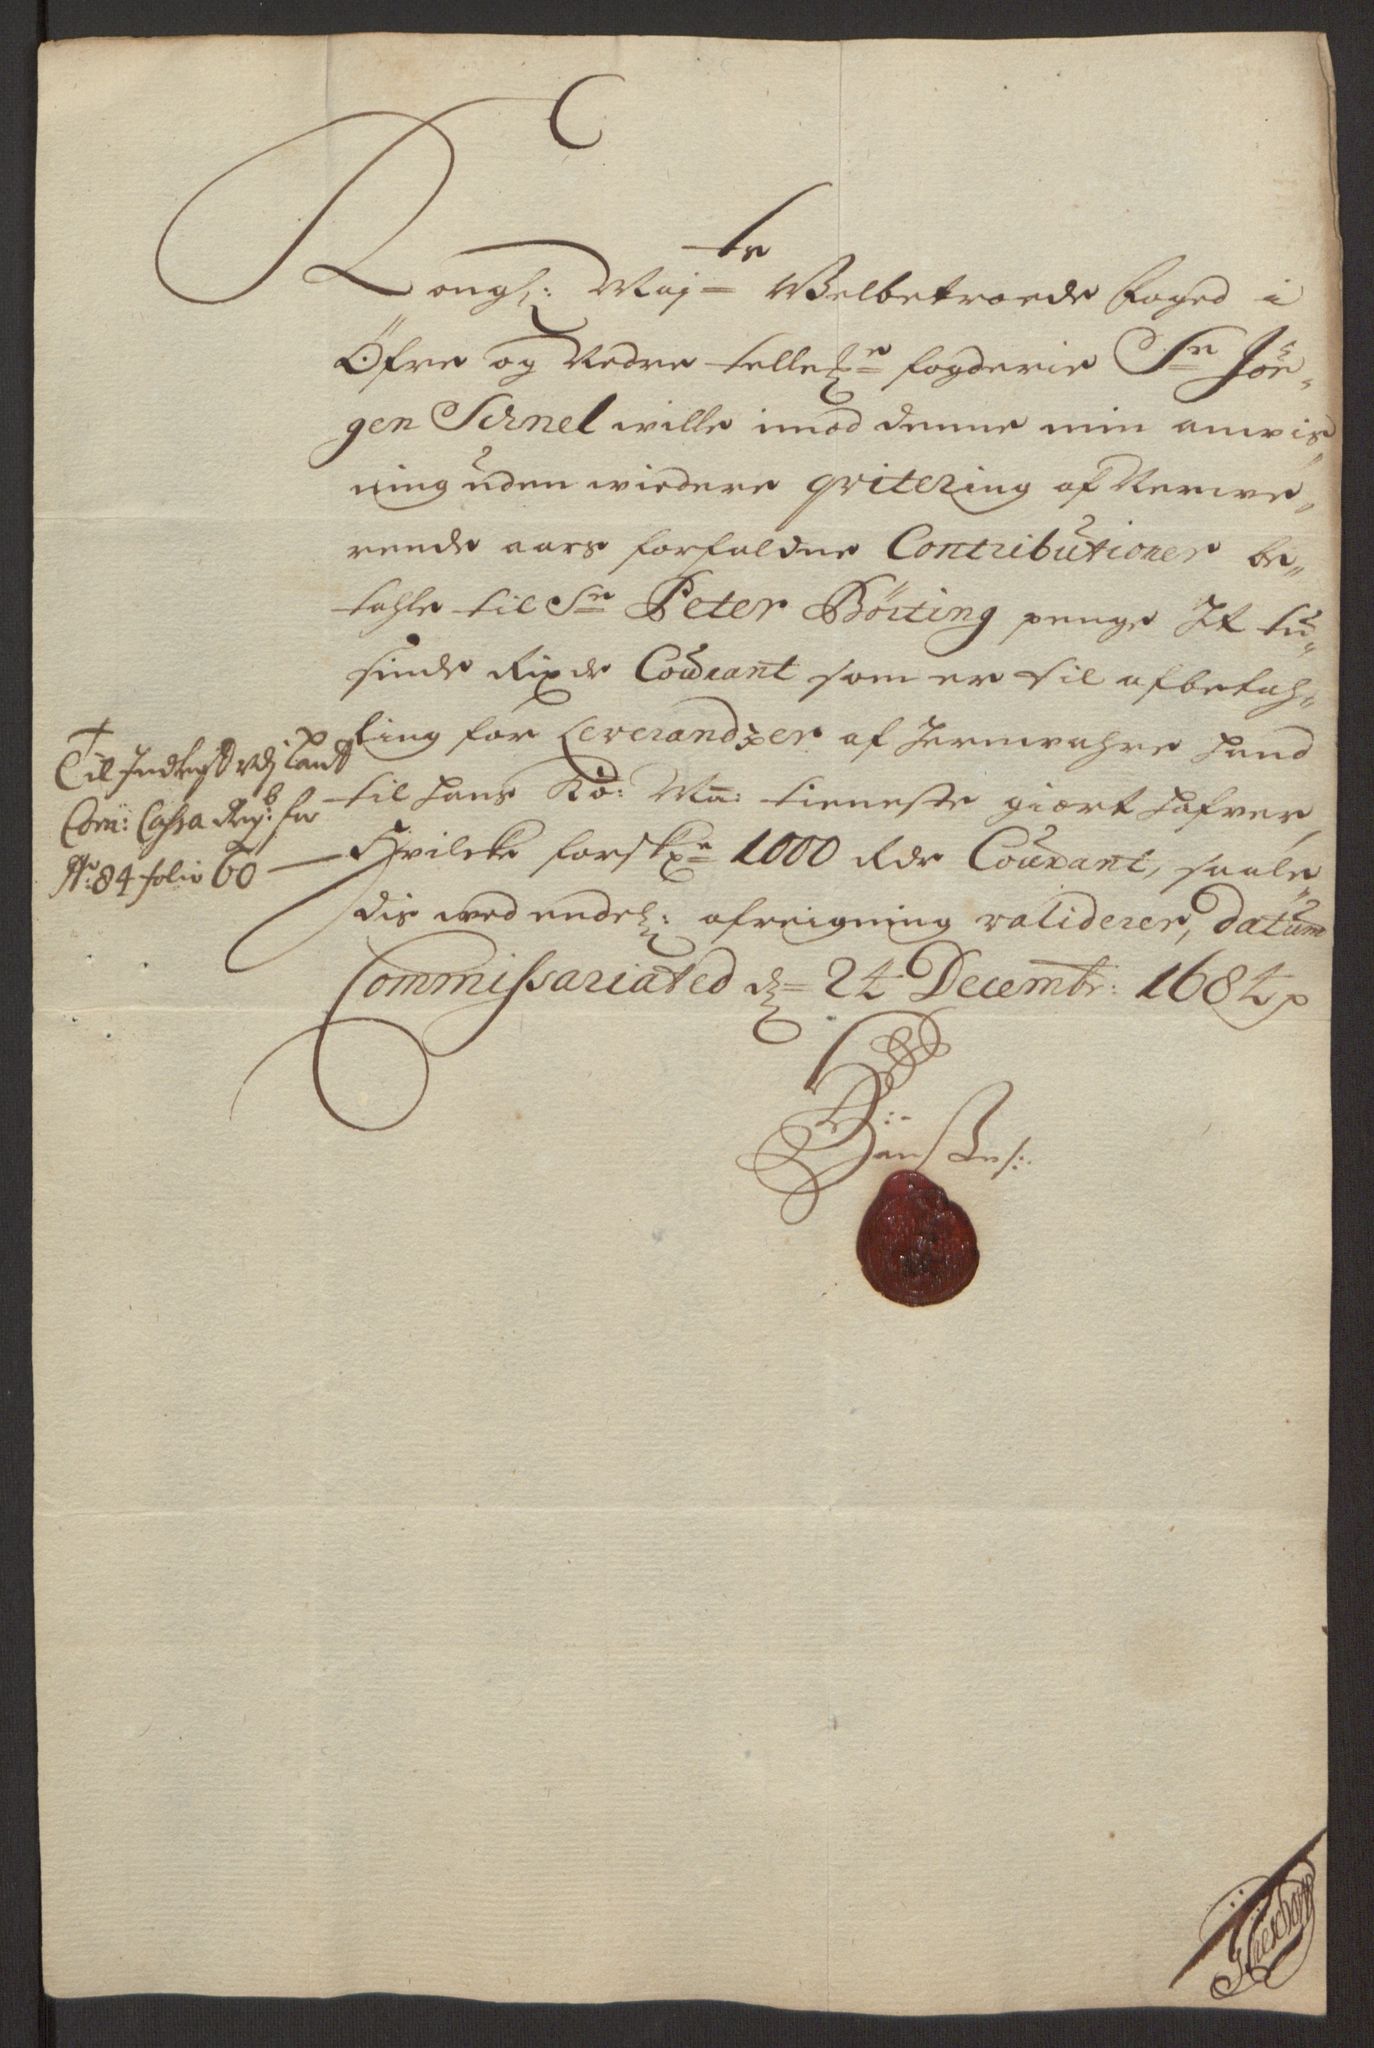 Kongl: Maj=ts Velbetroede foged i
Öfre og Nedre telle=n fogderie Sr Jör„
gen Schnel wille imod denne min anvis„
ning uden widere qvitering af Nerwe„
rende aars forfaldne Contributioner be„
tahle til Sr Peter Börting penge Jt tu„
sinde Rixdr Courant som er til afbetah„
ling for Leverandzer af Jernwahre hand
til hans Ko: Ma: tieneste giort hafver,
Hvilcke forskr=e 1000 Rdr Courant, saale„
dis wed endel: afreigning validerer, datum
Commissariated d= 24 Decembr: 1684
Til Indtegt udj Land
Com: Cassa Reg: for
Ao: 84 folio 60